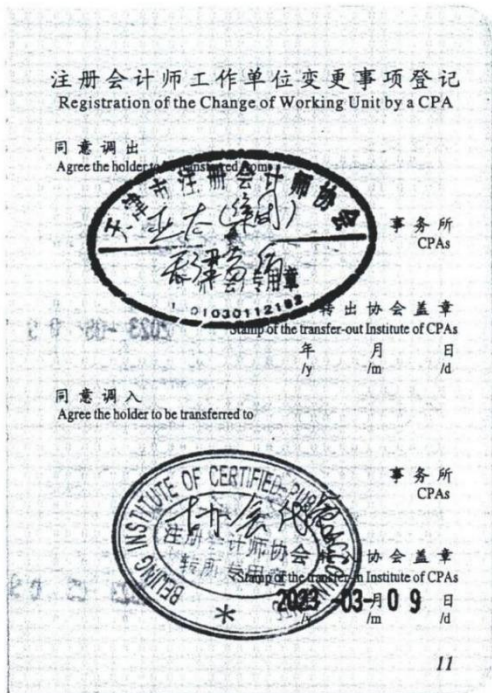 注册会计师工作单位变更事项登记
Registration of the Change of Working Unit by a CPA
同意调出
Agree the holder to be transferred from
天津市注册会计师协会
亚太(集团)
专用章
事务所
CPAs
转出协会盖章
Stamp of the transfer-out Institute of CPAs
年 月 日
/y /m /d
同意调入
Agree the holder to be transferred to
BEIJING INSTITUTE OF CERTIFIED PUBLIC
注册会计师协会
转所专用章
事务所
CPAs
协会盖章
Stamp of the transfer-in Institute of CPAs
2023 -03-月0 9 日
/m /d
11